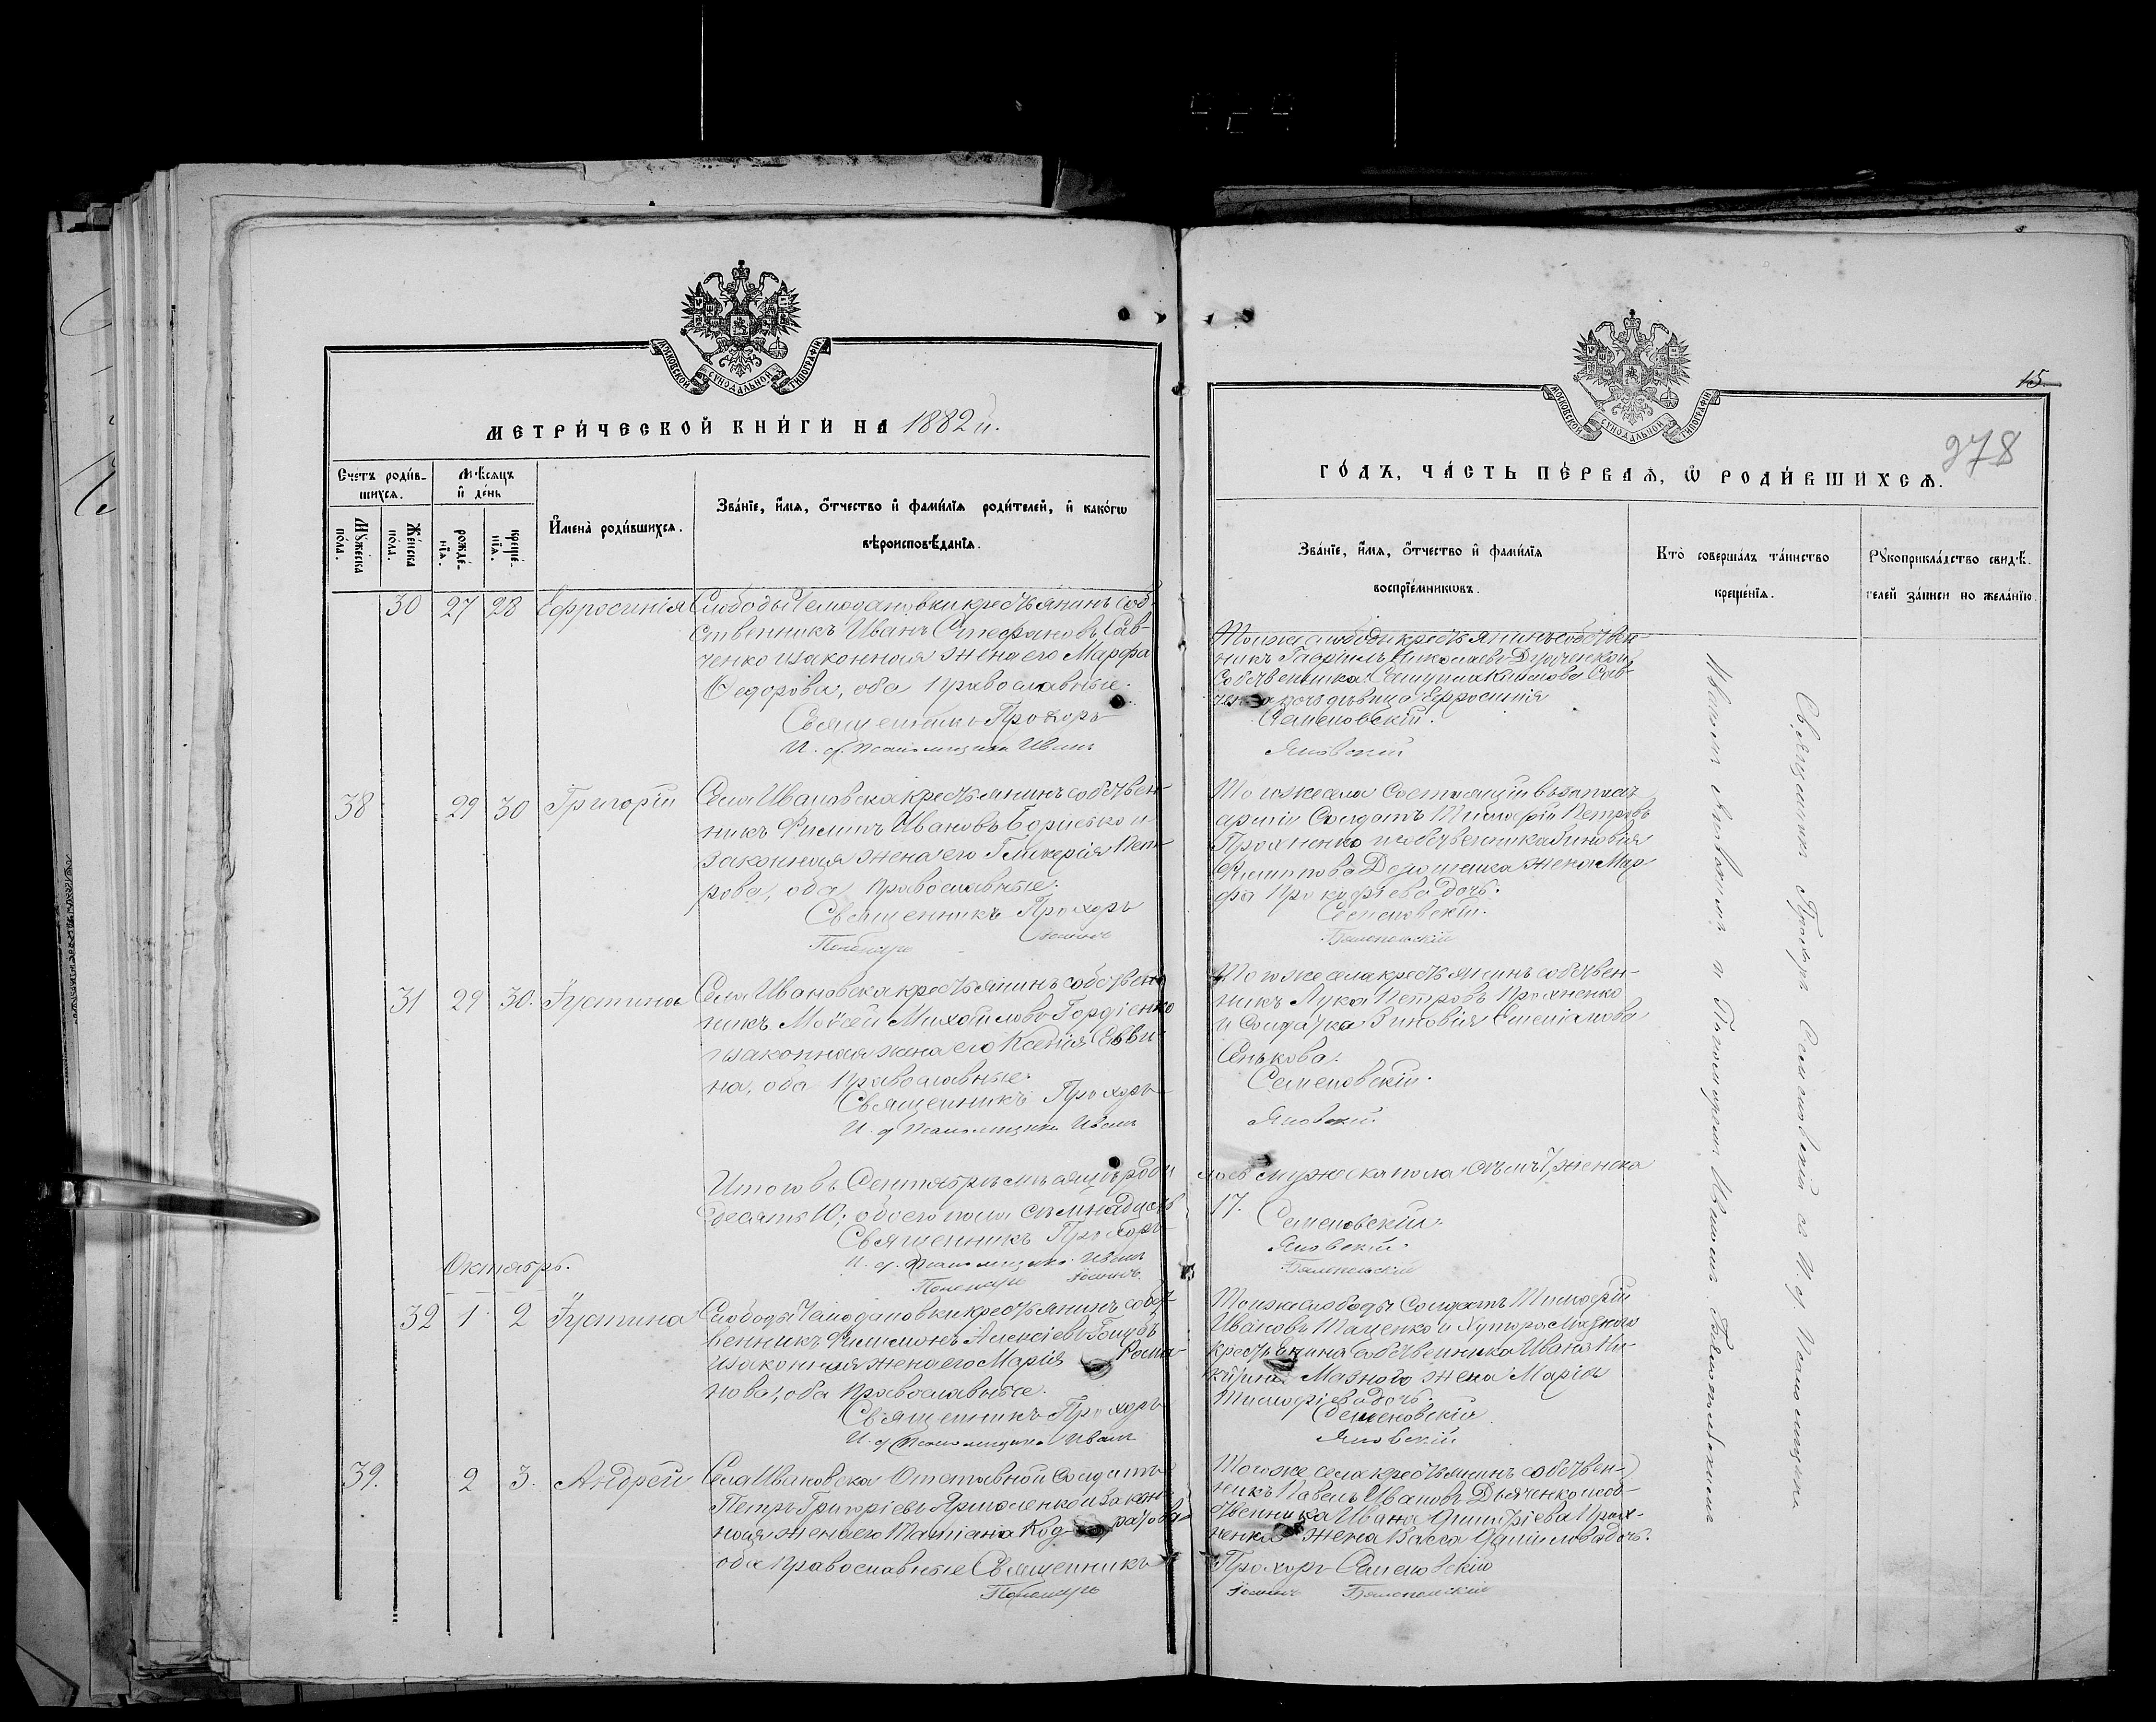 МОСКОВСКОЙ СУНОДАЛЬНОЙ ТИПОГРАФІИ
МЕТРИ́ЧЕСКОЙ КНИ́ГИ НА 1882й.
Счетъ роди́в-
шихся.
Мѣсяцъ
и҆ де́нь
Мꙋ́жеска
по́ла.
Же́нска
по́ла.
рожде́-
нїѧ.
креще́-
нїѧ.
И҆мена̀ роди́вшихсѧ.
Зва́нїе, и҆́мѧ, ѻ҆́тчество и҆ фами́лїѧ роди́телей, и҆ како́гѡ
вѣроисповѣ́данїѧ.
30 27 28 Ефросинія Слободы Чемодановки крестьянинъ соб-
ственникъ Иванъ Стефановъ Сав-
ченко и законная жена его Марфа
Ѳедорова, оба православные.
Священникъ Прохоръ
И. д. Псаломщика Иванъ
38 29 30 Григорій Села Ивановска крестьянинъ собствен-
никъ Филипъ Ивановъ и
законная жена его Гликерія Пет-
рова, оба православные.
Священникъ Прохоръ
Пономарь Іоаннъ
31 29 30. Іустина Села Ивановска крестьянинъ собствен
никъ Моѵсей Михайловъ Гордіенко
и законная жена его Ксенія Савви-
на, оба православные.
Священникъ Прохоръ
И. д. Псаломщика Иванъ
Итого въ Сентябрѣ мѣсяцѣ роди
десять 10; обоего пола семнадцать
Священникъ Прохоръ
И. д. Псаломщика Иванъ
Пономарь Іоаннъ
Октябрь.
32 1 2 Іустина Слободы Чемодановки крестьянинъ собст-
венникъ Филимонъ Алексіевъ Голубъ
и законная жена его Марія Рома-
нова, оба православные.
Священникъ Прохоръ
И. д. Псаломщика Иванъ
39. 2 3. Андрей Села Ивановска Отставной Солдатъ
Петръ Григоріевъ Ярмоленко и закон-
ная жена его Татіана Кодратова
оба православные Священникъ
Пономарь
МОСКОВСКОЙ СУНОДАЛЬНОЙ ТИПОГРАФІИ
15
278
ГО́ДЪ, ЧА́СТЬ ПЕ́РВАѦ, Ѡ҆ РОДИ́ВШИХСѦ.
Зва́нїе, и҆́мѧ, ѻ҆́тчество и҆ фами́лїѧ
воспрїе́мникѡвъ.
Кто̀ соверша́лъ та́инство
креще́нїѧ.
Рꙋкоприкла́дство свидѣ́-
телей за́писи по жела́нїю.
Тоижъ слободы крестьянинъ собствен-
никъ Гавріилъ Николаевъ и
собственника Савченка дочь дѣвица Ефросинія
Семеновскій.
Яновскій
Тогоже села Состоящій въ запасѣ
арміи Солдатъ Тимофій Петровъ
Прохненко и собственника Зиновія
Филиппова жена Мар
фа Прокофіева дочь.
Семеновскій.
Тогоже села крестьянинъ собствен-
никъ Лука Петровъ Прохненко
и Солдатка Зиновія Емеліанова
Сенькова.
Семеновскій.
Яновскій.
лось мужеска пола семь 7, женска
17.
Семеновскій.
Яновскій.
Тоижъ слободы Солдатъ Тимофій
Ивановъ Таценко и Хутора Мазного
крестьянина собственника Ивана Ни-
китина Мазного жена Марія
Тимофіева дочь.
Семеновскій
Яновскій
Тогоже села крестьянинъ собствен-
никъ Павелъ Ивановъ Дьяченко и соб-
ственника Ивана Прох-
ненка жена Васса Даніилова дочь.
Прохоръ Семеновскій
Іоаннъ
Священникъ Прохоръ Семеновскій съ И. д. Псаломщика
Иваномъ Яновскимъ и Пономаремъ